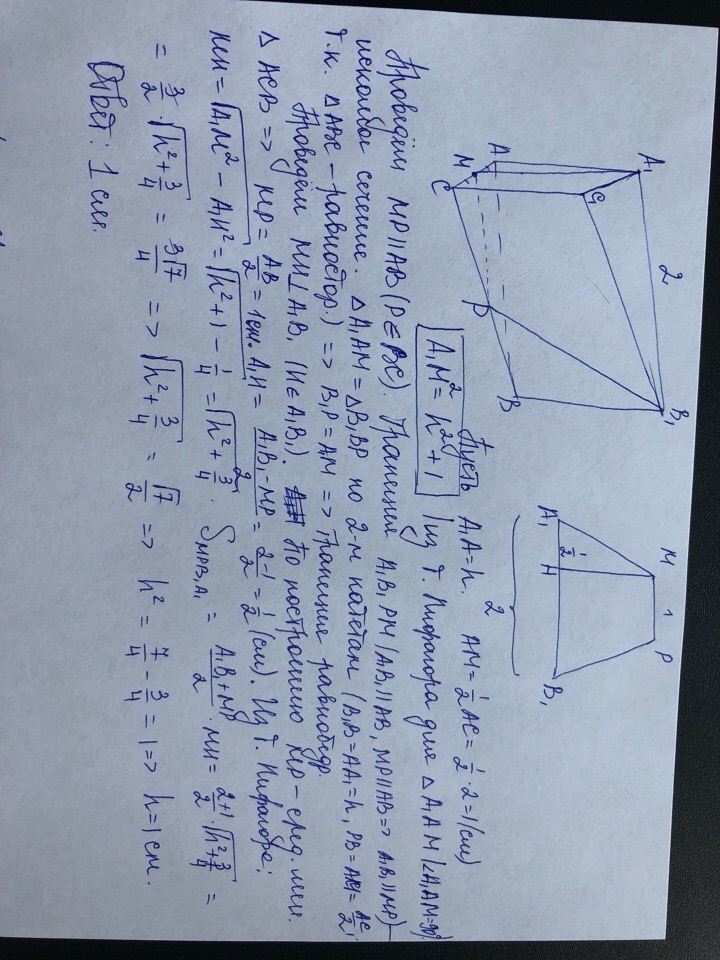 A₁
B₁
2
C₁
A
M
C
P
B
A₁
M
1/2
H
1
2
P
B₁
Пусть A₁A=h. AM=1/2 AC=1/2·2=1(см)
A₁M²=h²+1 (из т. Пифагора для △A₁AM (∠A₁AM=90°)
Проведём MP∥AB (P∈BC). Трапеция A₁B₁PM (A₁B₁∥AB, MP∥AB=> A₁B₁∥MP) –
искомое сечение. △A₁AM=△B₁BP по 2-м катетам (B₁B=AA₁=h, PB=AM=AC/2,
т.к. △ABC – равностор.) => B₁P=A₁M => трапеция равнобедр.
Проведём MH⊥A₁B₁ (H∈A₁B₁). По построению MP – сред. лин.
△ACB => MP=AB/2=1см. A₁H=(A₁B₁-MP)/2=(2-1)/2=1/2(см). Из т. Пифагора:
MH=√(A₁M²-A₁H²)=√(h²+1-1/4)=√(h²+3/4). S_MPB₁A₁=(A₁B₁+MP)/2·MH=(2+1)/2·√(h²+3/4)=
=3/2·√(h²+3/4)=3√7/4 => √(h²+3/4)=√7/2 => h²=7/4-3/4=1=> h=1см.
Ответ: 1 см.